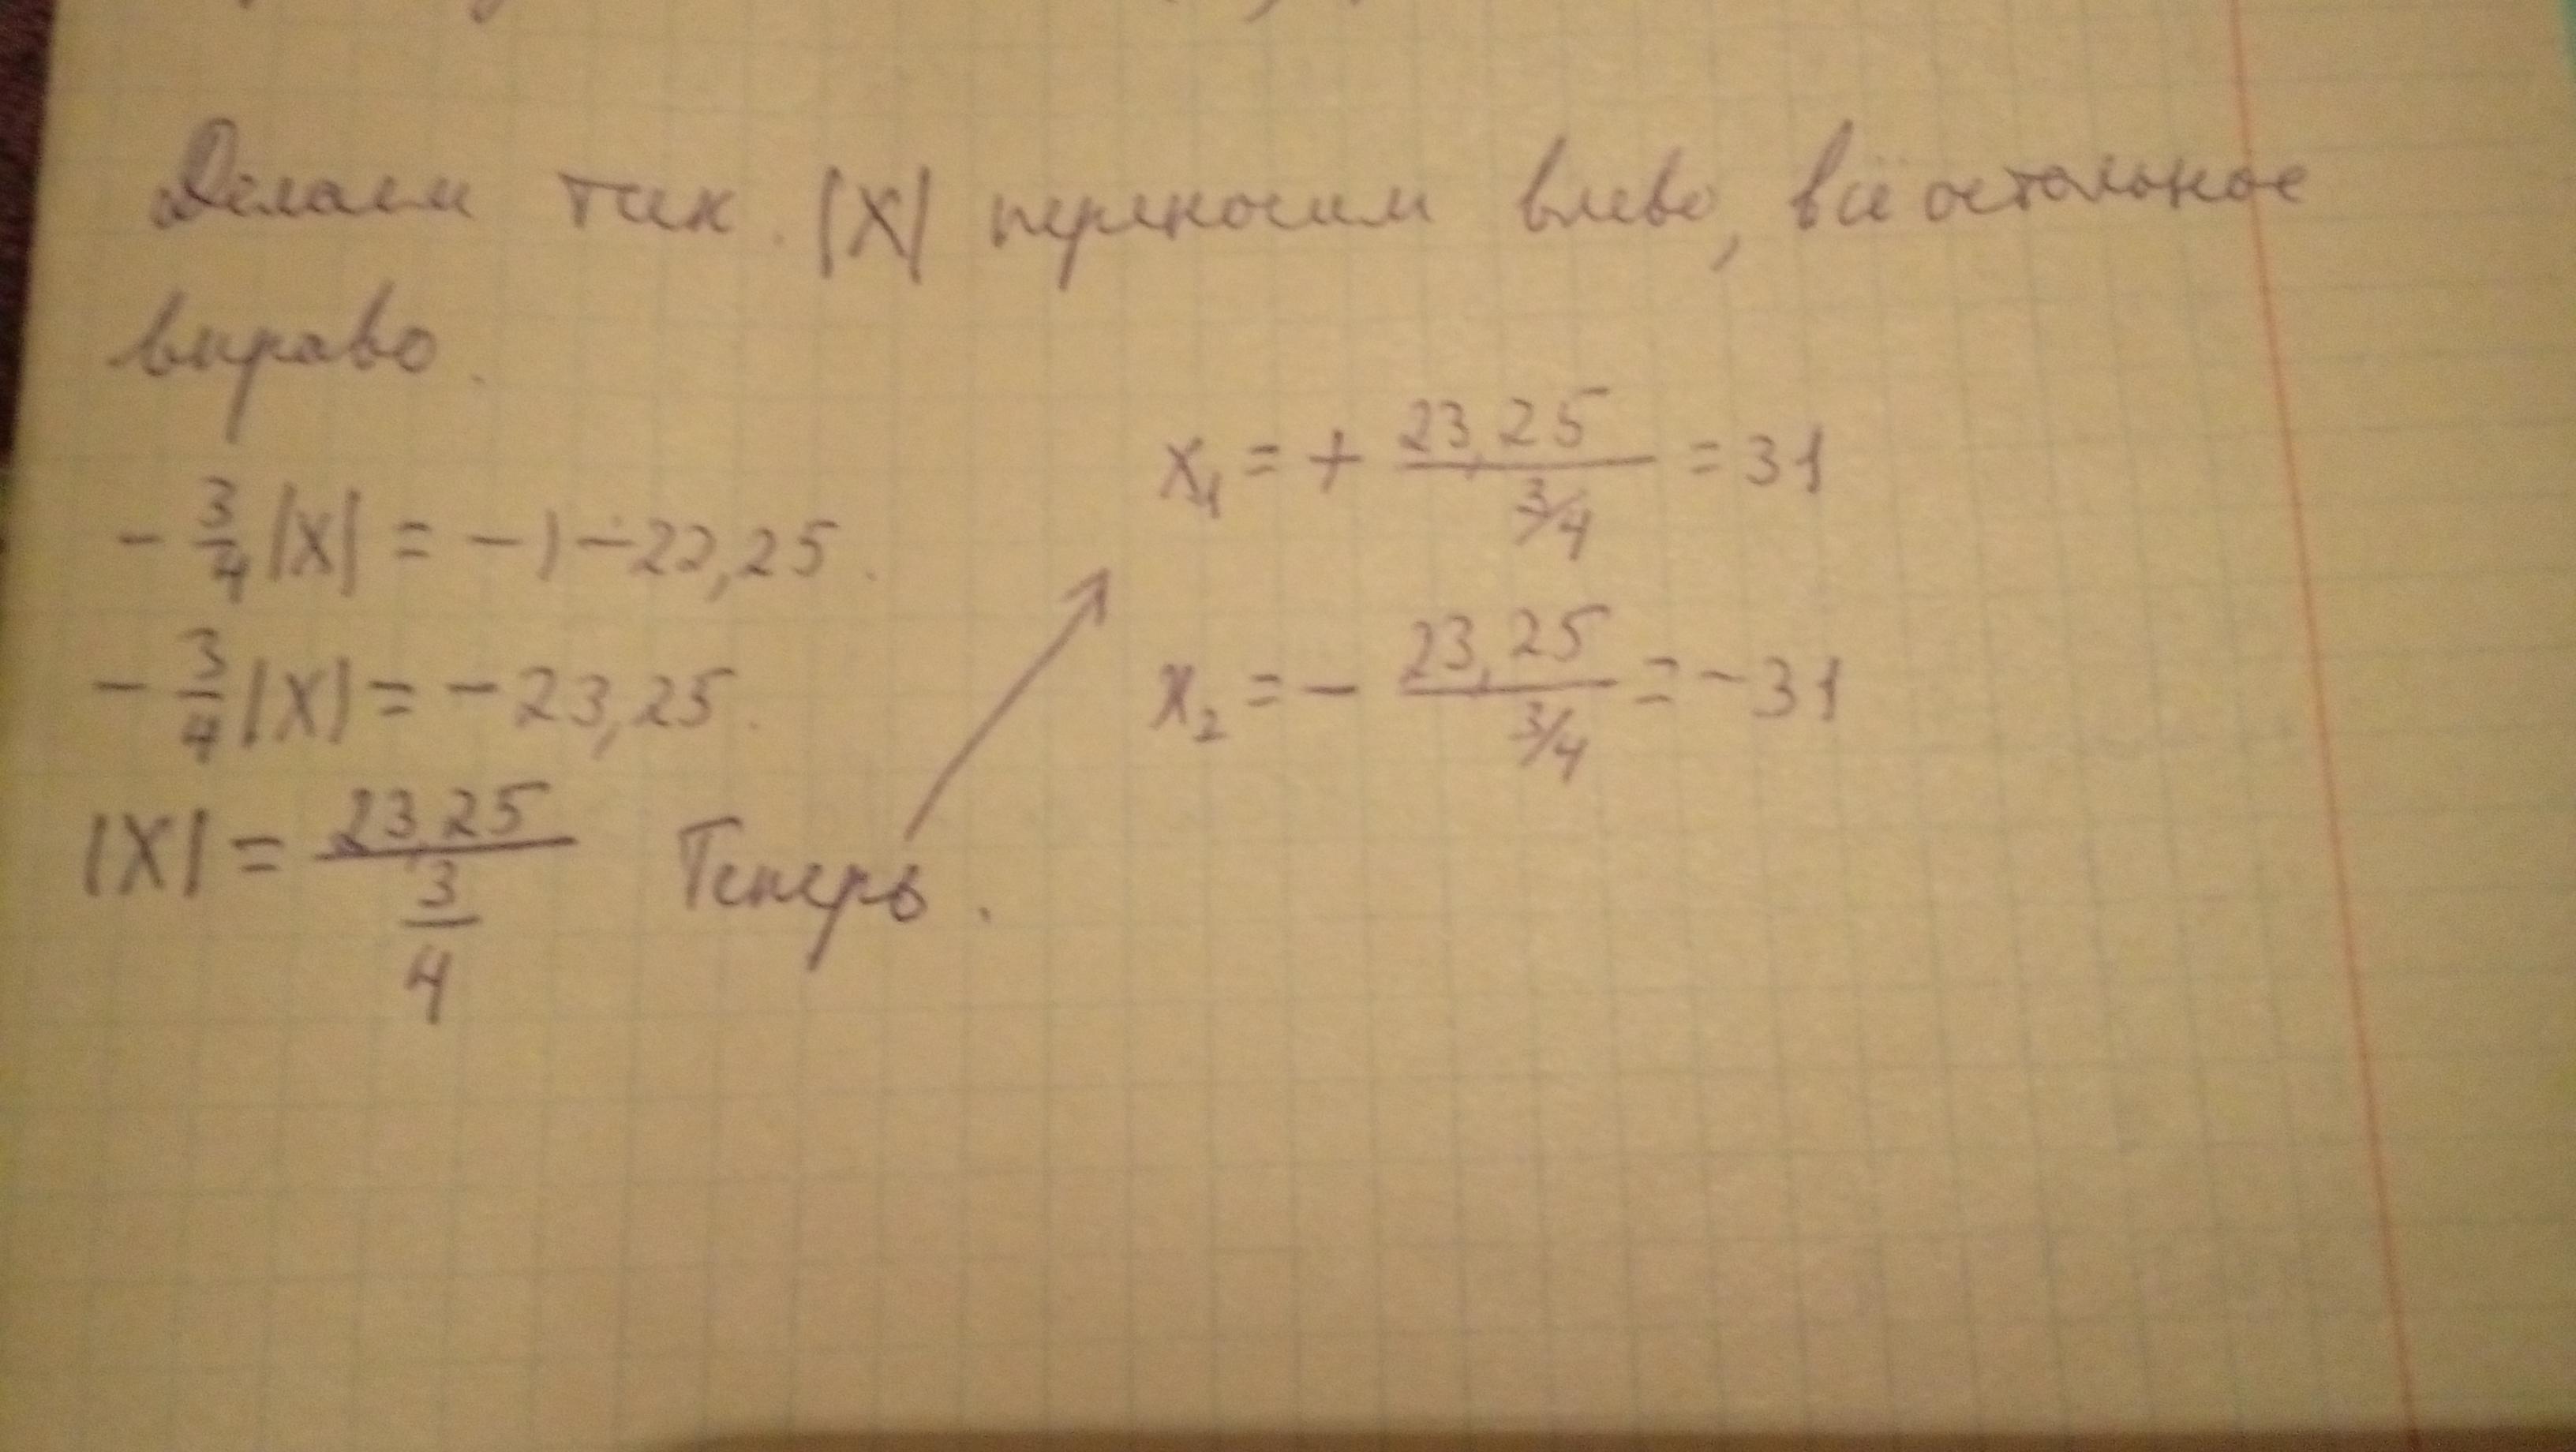 Делаем так. |X| переносим влево, всё остальное
вправо.
- 3/4 |X| = -1 - 22,25.
- 3/4 |X| = - 23,25.
|X| = 23,25 / (3/4) Теперь.
x₁ = + 23,25 / (3/4) = 31
x₂ = - 23,25 / (3/4) = -31